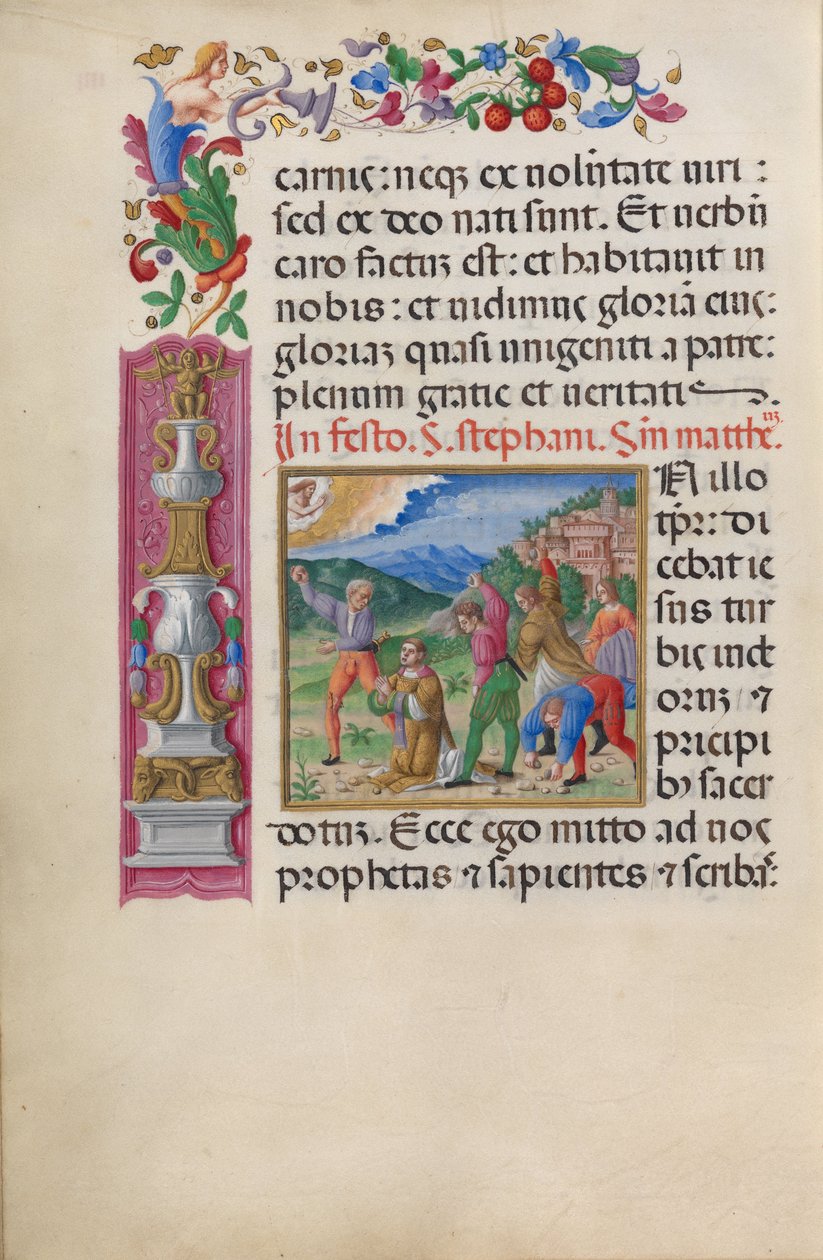 carnis: neq₃ ex volūtate viri:
sed ex deo nati sunt. Et verbū
caro factuʒ est: et habitauit in
nobis: et vidimus gloriā eius:
gloriaʒ quasi unigeniti a patre:
plenum gratie et veritatis.
In festo. S. stephani. Sm̄ mattheuʒ.
In illo
tp̄r: di
cebat ie
sus tur
bis iude
oruʒ ⁊
pricipi
bꝰ sacer
dotuʒ. Ecce ego mitto ad vos
prophetas ⁊ sapientes ⁊ scribas: